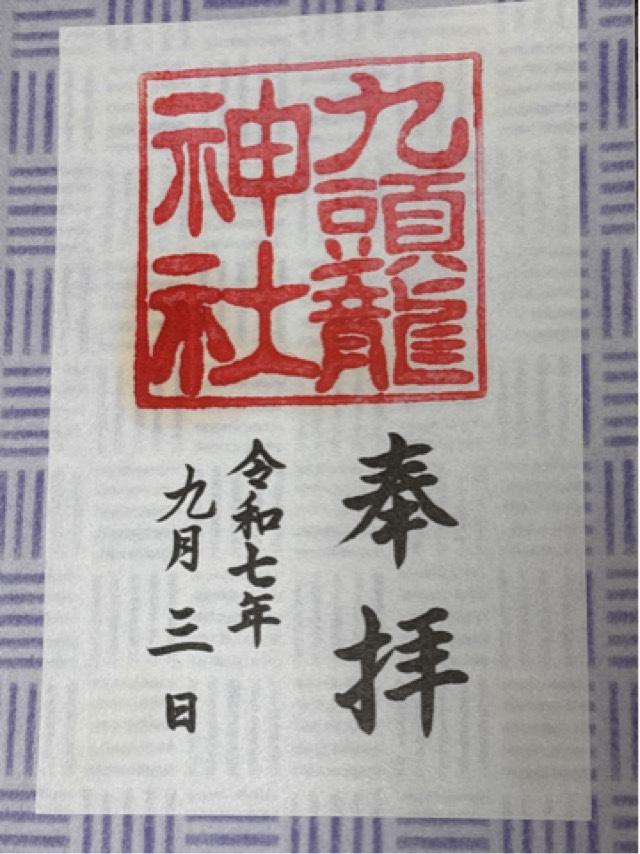 九頭龍
神社
奉拝
令和七年
九月三日